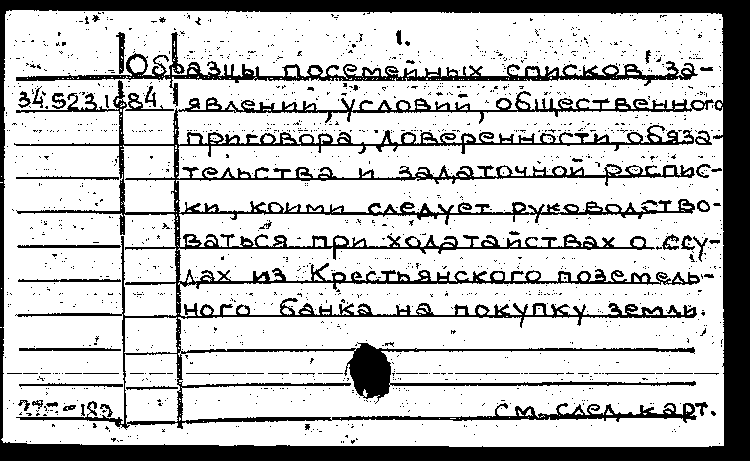 1.
Образцы посемейных списков, за-
34.523.1684. явлений, условий, общественного
приговора, доверенности, обяза-
тельства и задаточной роспис-
ки, коими следует руководство-
ваться при ходатайствах о ссу-
дах из Крестьянского поземель-
ного банка на покупку земли.
см. след. карт.